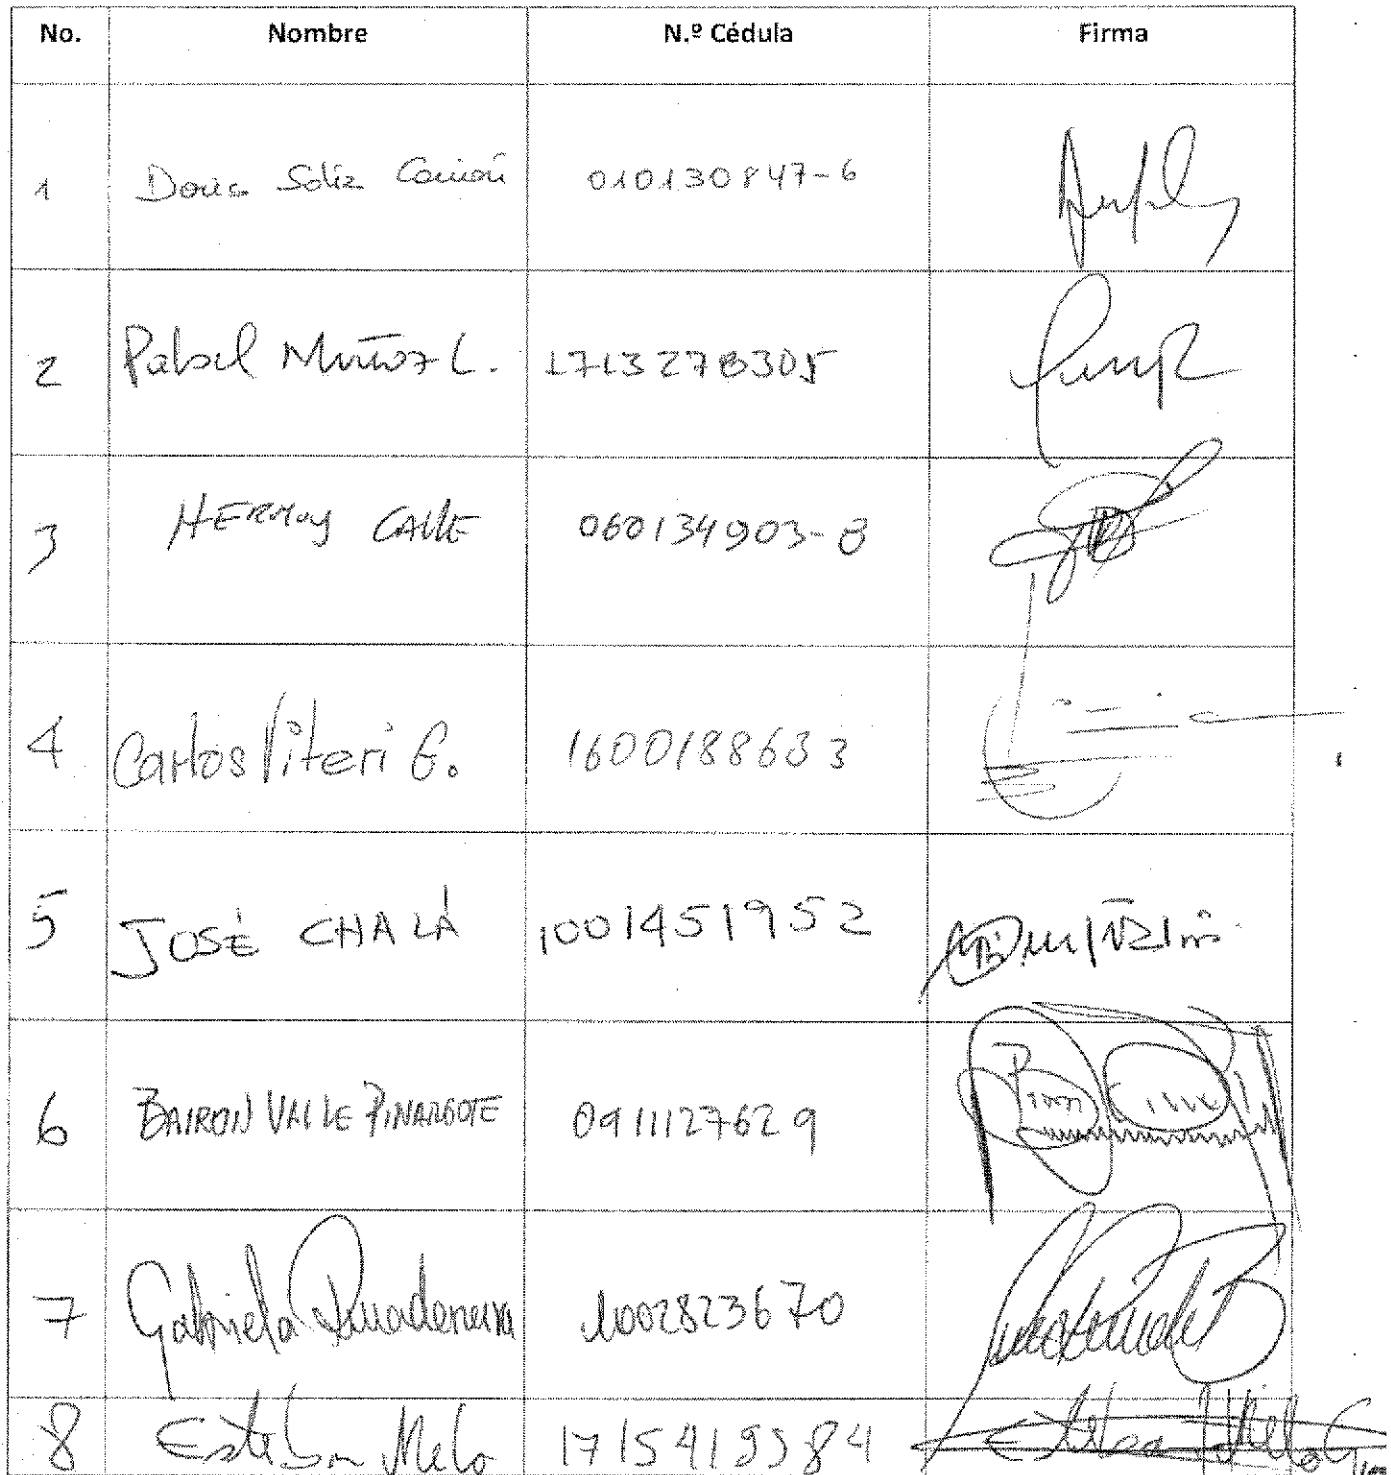 No. Nombre N.º Cédula Firma
1 Doris Soliz Carrión 010130847-6
2 Pabel Muñoz L. 1713278305
3 HERMUY CALLE 060134903-8
4 Carlos Viteri G. 1600188633
5 JOSÉ CHALÁ 1001451952
6 BAIRON VALLE PINARGOTE 0911127629
7 Gabriela Rivadeneira 1002823670
8 Esteban Melo 1715419584 Esteban Melo G